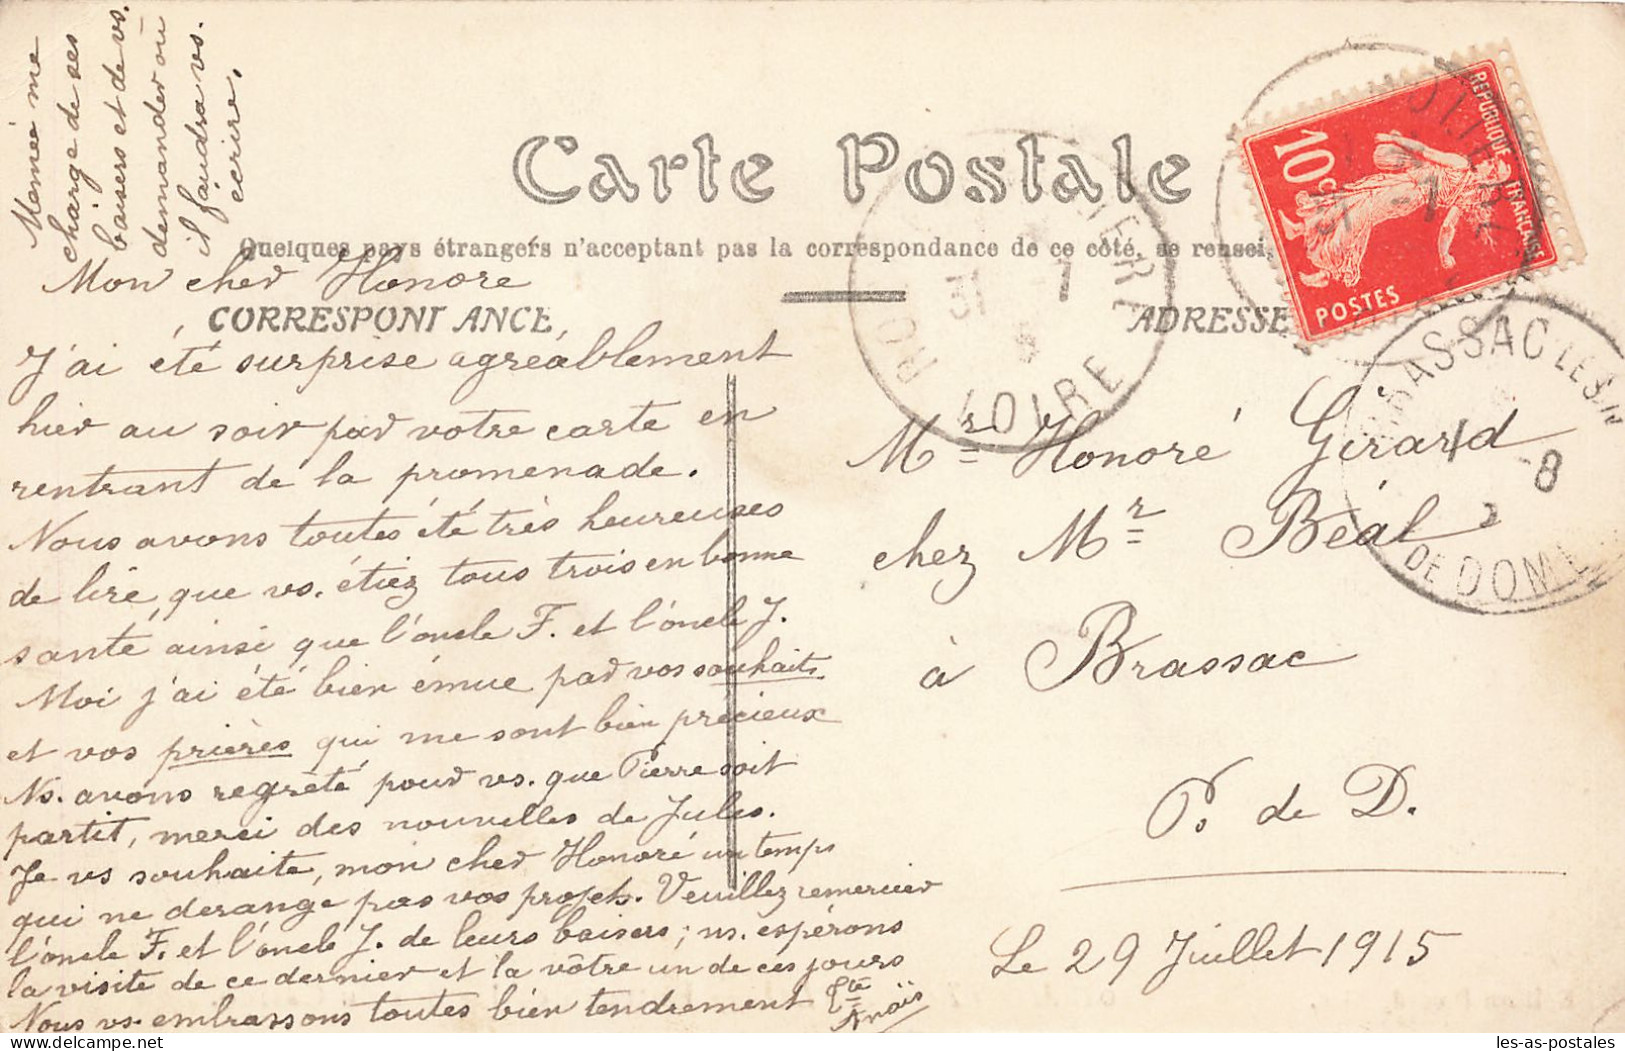 Mémée me
charge de ses
baisers et de vs.
demander où
il faudra vs.
écrire.
Carte Postale
Quelques pays étrangers n'acceptant pas la correspondance de ce côté, se rensei
Mon cher Honore
CORRESPONDANCE
ADRESSE
J'ai été surprise agréablement
hier au soir par votre carte en
rentrant de la promenade.
Nous avons toutes été très heureuses
de lire, que vs. étiez tous trois en bonne
santé ainsi que l'oncle F. et l'oncle J.
Moi j'ai été bien émue par vos souhaits
et vos prières qui me sont bien précieux
Ns. avons regrèté pour vs. que Pierre soit
partit, merci des nouvelles de Jules.
Je vs souhaite, mon cher Honoré un temps
qui ne derange pas vos projets. Veuillez remercier
l'oncle F. et l'oncle J. de leurs baisers; ns. espérons
la visite de ce dernier et la vôtre un de ces jours
Nous vs. embrassons toutes bien tendrement
Anaïs
Mr Honoré Girard
chez Mr Béal
à Brassac
P. de D.
Le 29 Juillet 1915
REPUBLIQUE FRANÇAISE
10c
POSTES
31 -7
LOIRE
BRASSAC LES M
-8
DE DOME
les-as-postales.com